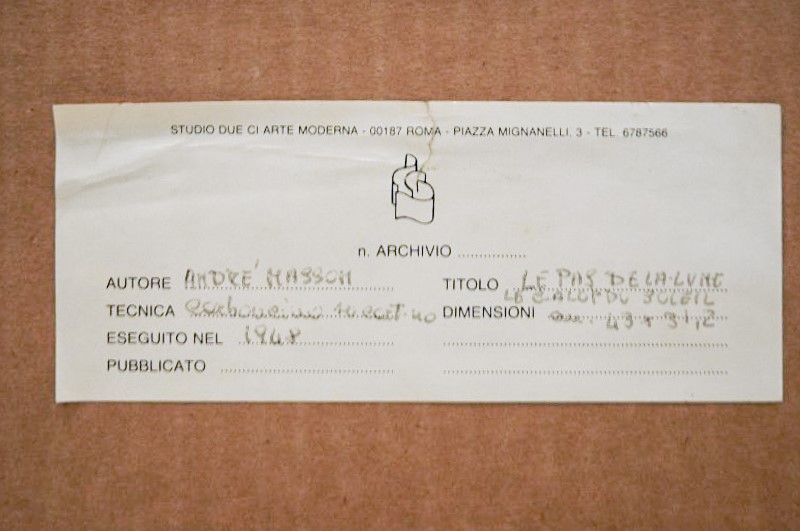 STUDIO DUE CI ARTE MODERNA - 00187 ROMA - PIAZZA MIGNANELLI, 3 - TEL. 6787566
n. ARCHIVIO
AUTORE ANDRÉ MASSON
TITOLO LE PAS DE LA LUNE
LE GALOP DU SOLEIL
TECNICA Carboncino
DIMENSIONI 43 x 31,2
ESEGUITO NEL 1948
PUBBLICATO